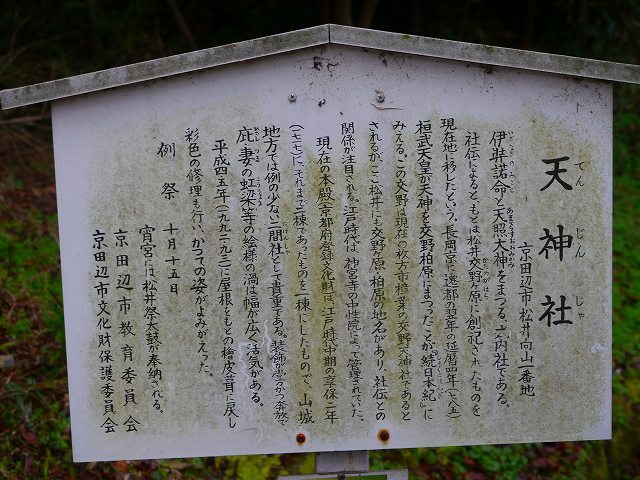 天神社
てんじんしゃ
京田辺市松井向山一番地
伊弉諾命と天照大神をまつる、式内社である。
社伝によると、もとは松井交野ヶ原に創祀されたものを
現在地に移したという。長岡京に遷都の翌年の延暦四年(七八五)
桓武天皇が天神を交野柏原にまつったことが『続日本紀』に
みえる。この交野は現在の枚方市樟葉の交野天神社であると
されるが、ここ松井にも交野ヶ原・柏原の地名があり、社伝との
関係が注目される。江戸時代は、神宮寺の中性院によって管理されていた。
現在の本殿(京都府登録文化財)は、江戸時代中期の享保二年
(一七一七)に、それまで二棟であったものを一棟にしたもので、山城
地方では例の少ない二間社として貴重である。装飾が豊かで奔放で
庇・妻の虹梁等の絵様の渦は幅が広く活気がある。
平成四・五年(一九九二・九三)に屋根をもとの檜皮葺に戻し
彩色の修理も行い、かつての姿がよみがえった。
例祭 十月十五日
宵宮には松井祭太鼓が奉納される。
京田辺市教育委員会
京田辺市文化財保護委員会